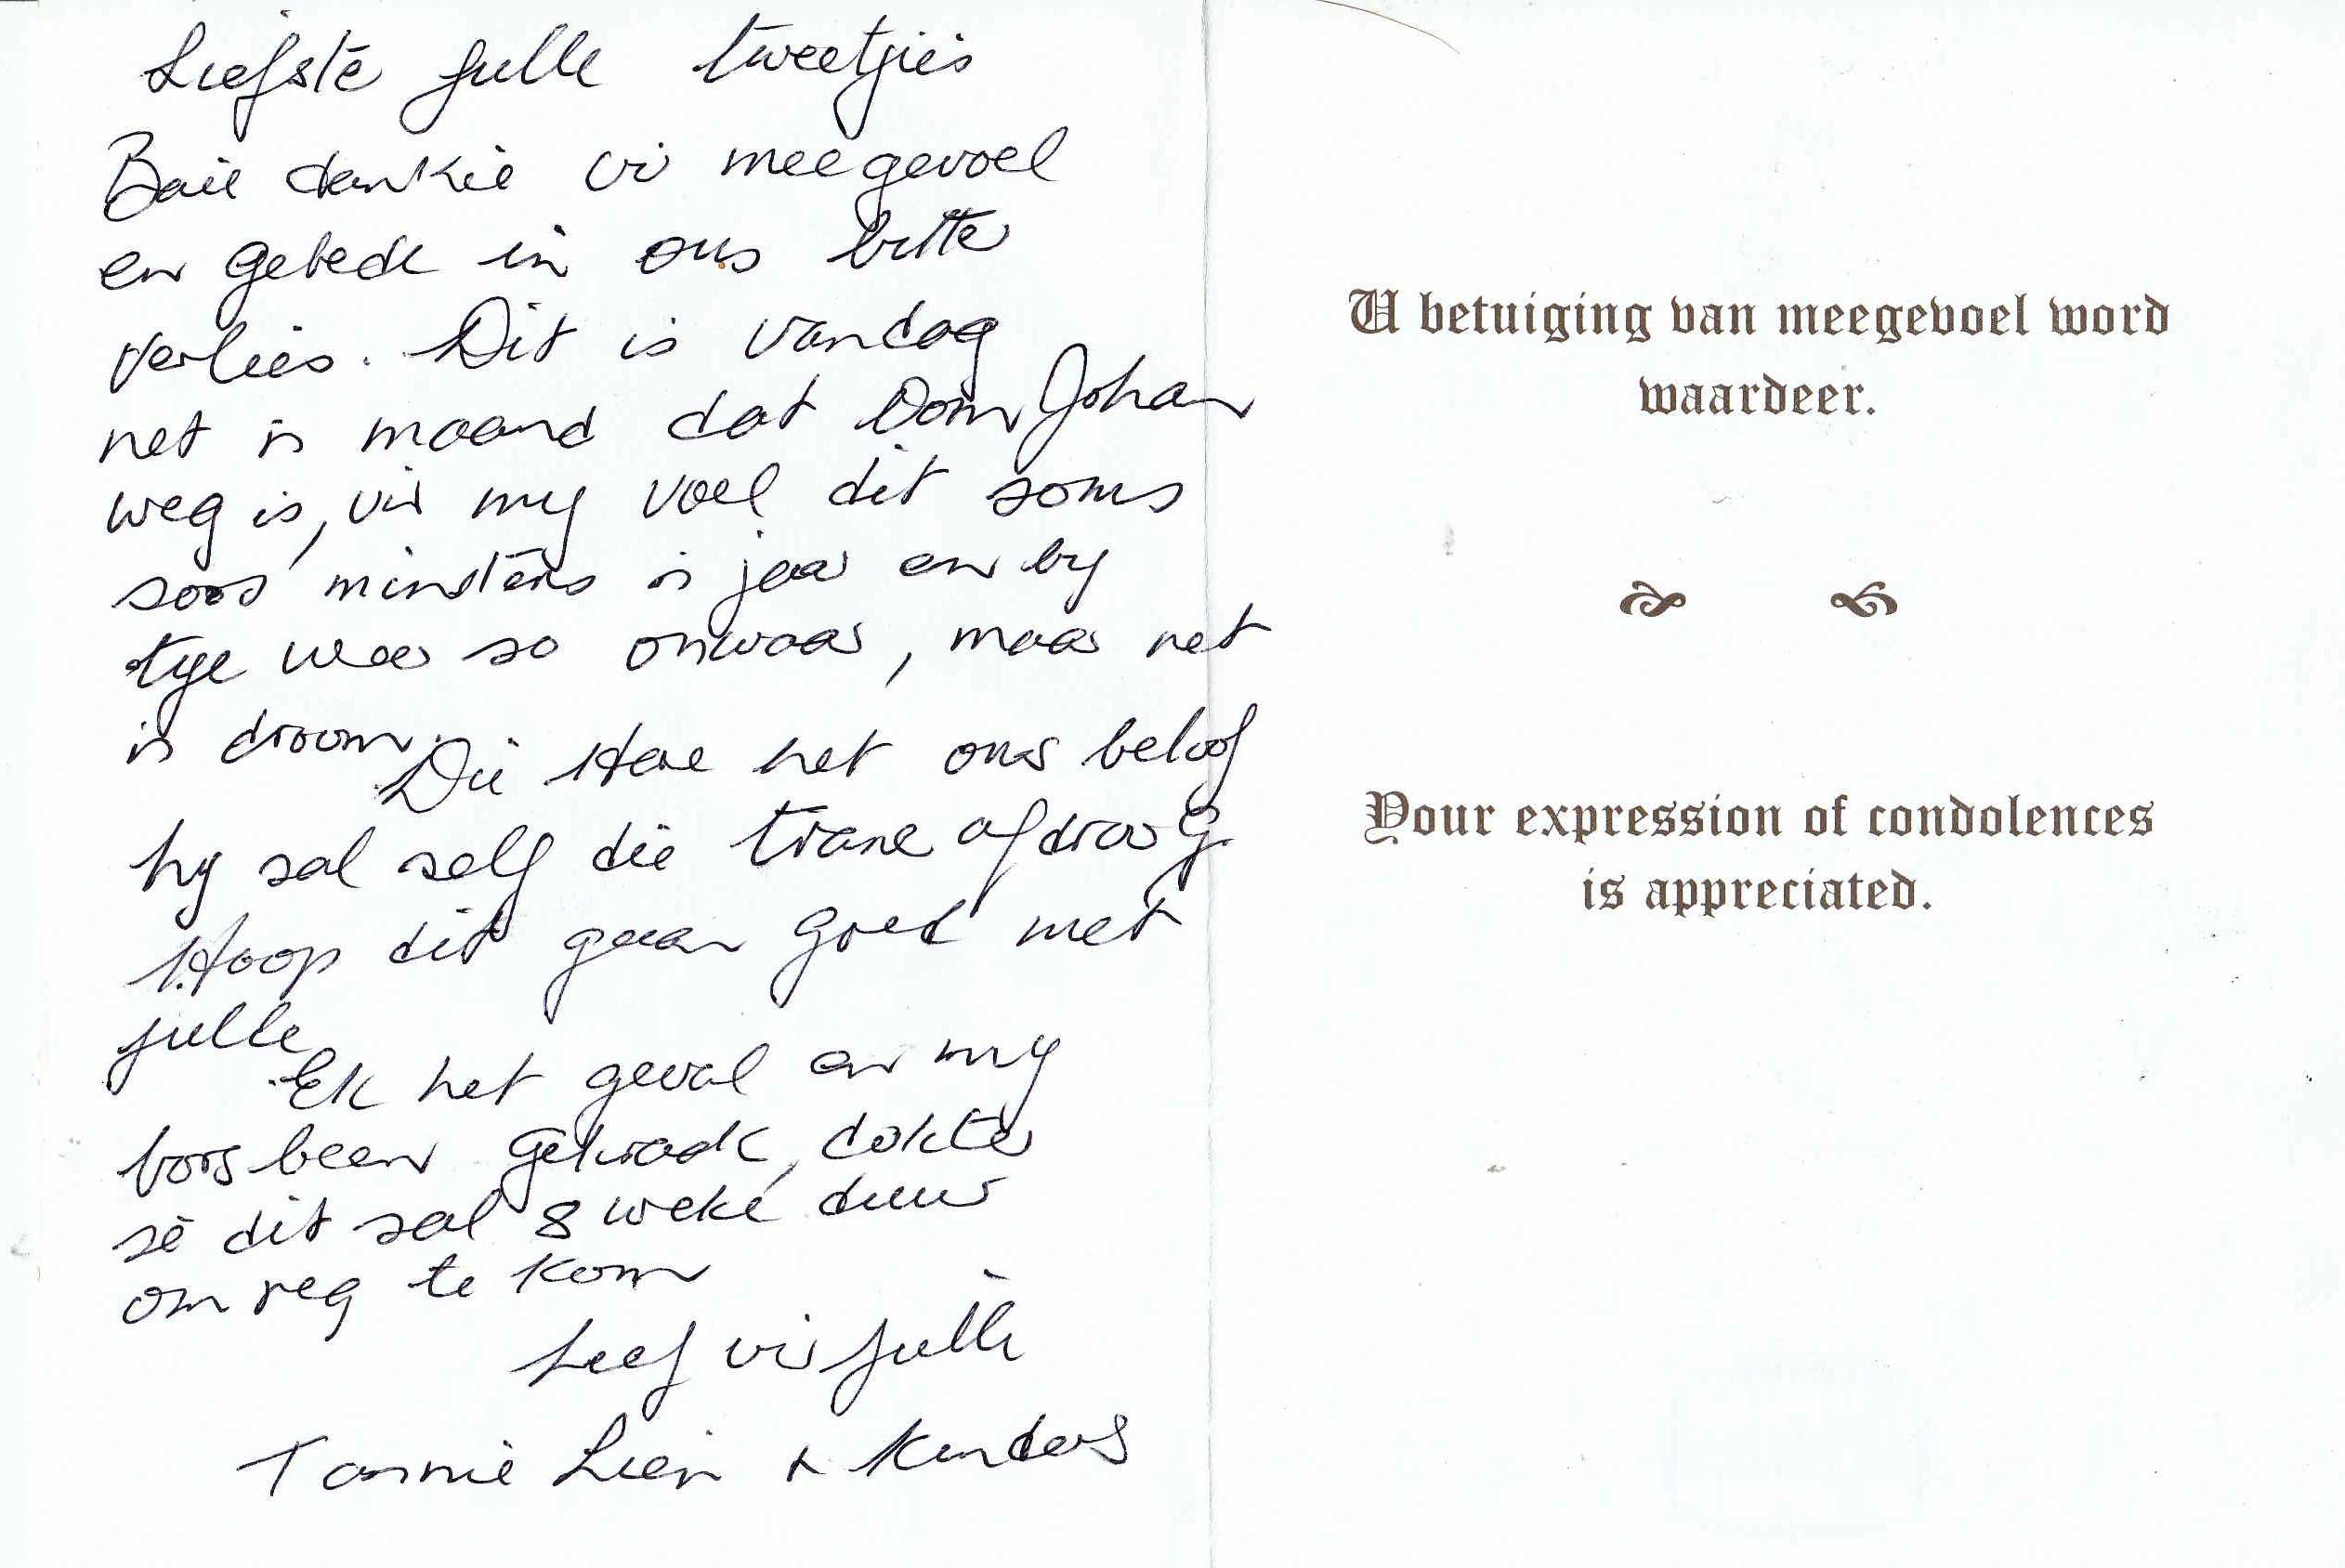 Liefste julle tweetjies
Baie dankie vi meegevoel
en gebede in ons bitte
verlies. Dit is vandag
net 'n maand dat Oom Johan
weg is, vir my voel dit soms
soos minstens 'n jaar en by
tye weer so onwaar, maar net
'n droom.
Die Here het ons beloof
hy sal self die trane afdroog.
Hoop dit gaan goed met
julle
Ek het geval en my
borsbeen gekraak, dokter
sê dit sal 8 weke duur
om reg te kom
Leef vir julle
Tannie Lien + Kinders
U betuiging van meegevoel word
waardeer.
Your expression of condolences
is appreciated.